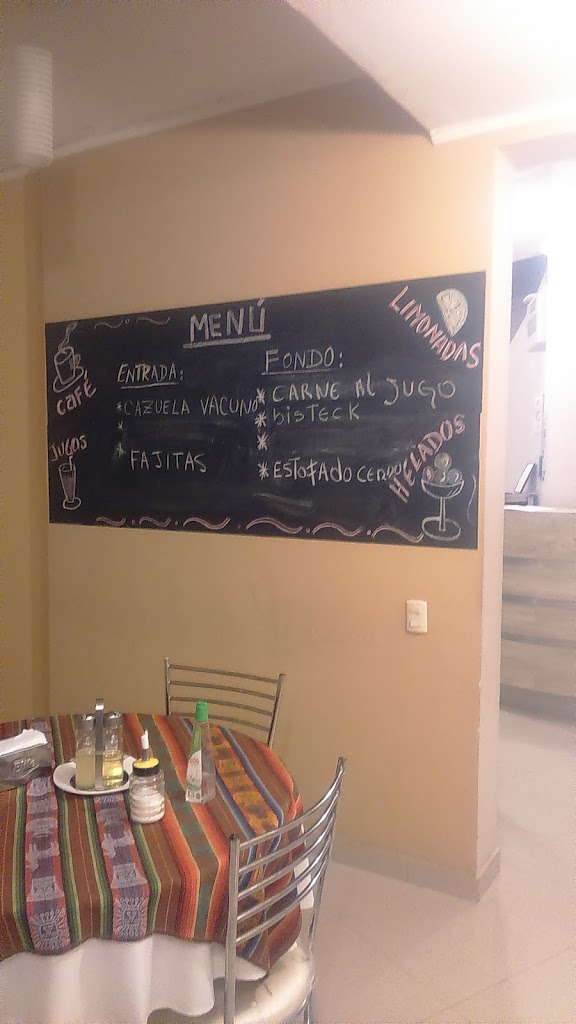 MENÚ
CAFÉ
JUGOS
ENTRADA:
*CAZUELA VACUNO
*
* FAJITAS
FONDO:
* CARNE AL JUGO
* bISTECK
*
* ESTOFADO CERDO
LIMONADAS
HELADOS